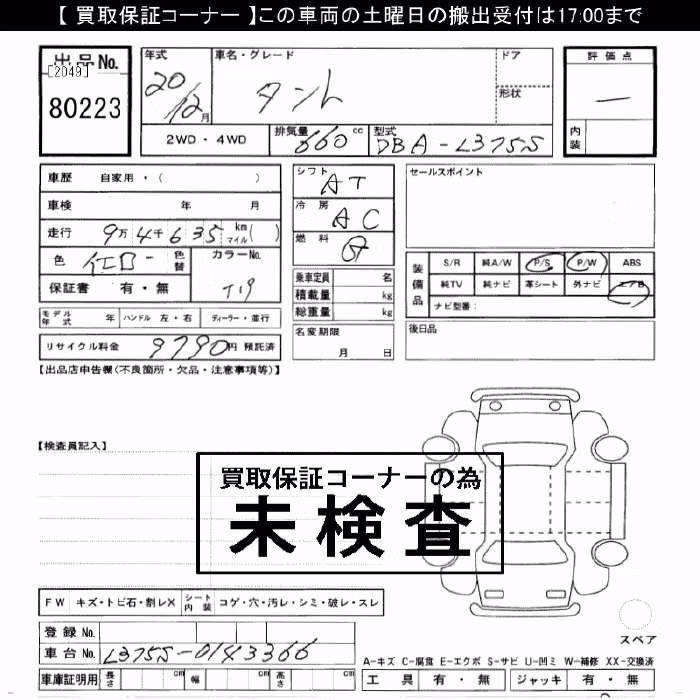 【 買取保証コーナー 】この車両の土曜日の搬出受付は17:00まで
出品No.
[2049]
80223
年式
20/12月
車名・グレード
タント
ドア
形状
2WD・4WD
排気量 660 cc
型式 DBA-L375S
評価点
—
内装
車歴 自家用・( )
車検 年 月
走行 9万4千635 km マイル( )
色
色替
カラーNo.
T19
保証書 有・無
モデル年式 年 ハンドル 左・右 ディーラー・並行
リサイクル料金 9790円 預託済
シフト AT
冷房 AC
燃料 ガ
乗車定員 名
積載量 kg
総重量 kg
名変期限
月 日
セールスポイント
装備品
S/R 純A/W P/S P/W ABS
純TV 純ナビ 革シート 外ナビ エアB
ナビ型番:
後日品
【出品店申告欄(不良箇所・欠品・注意事項等)】
【検査員記入】
買取保証コーナーの為
未検査
FW キズ・トビ石・割レX シート内装 コゲ・穴・汚レ・シミ・破レ・スレ
スペア
登録No.
車台No. L375S-0143366
車庫証明用 長さ cm 幅 cm 高さ cm
A-キズ C-腐食 E-エクボ S-サビ U-凹ミ W-補修 XX-交換済
工具 有・無 ジャッキ 有・無